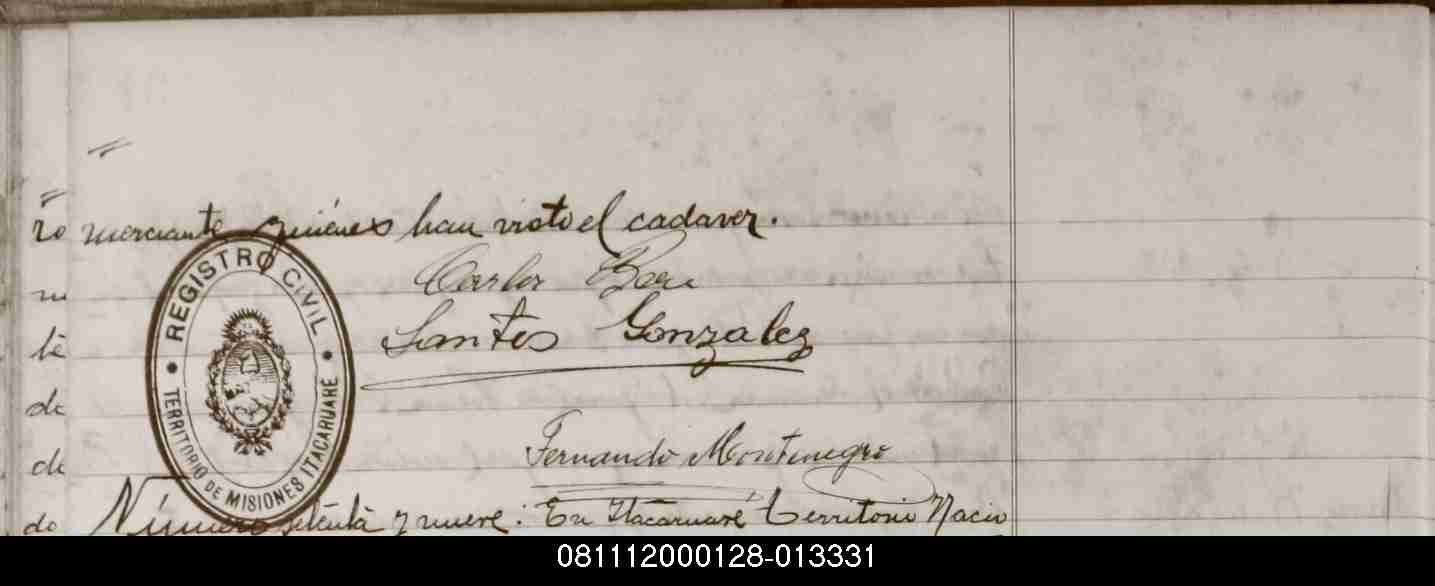 ro merciante quiénes han visto el cadaver.
Carlos
Santos Gonzalez
Fernando Montenegro
REGISTRO CIVIL
TERRITORIO DE MISIONES ITACARUARÉ
te
de
de
do Número setenta y nueve: En Itacaruaré Territorio Nacio
081112000128-013331